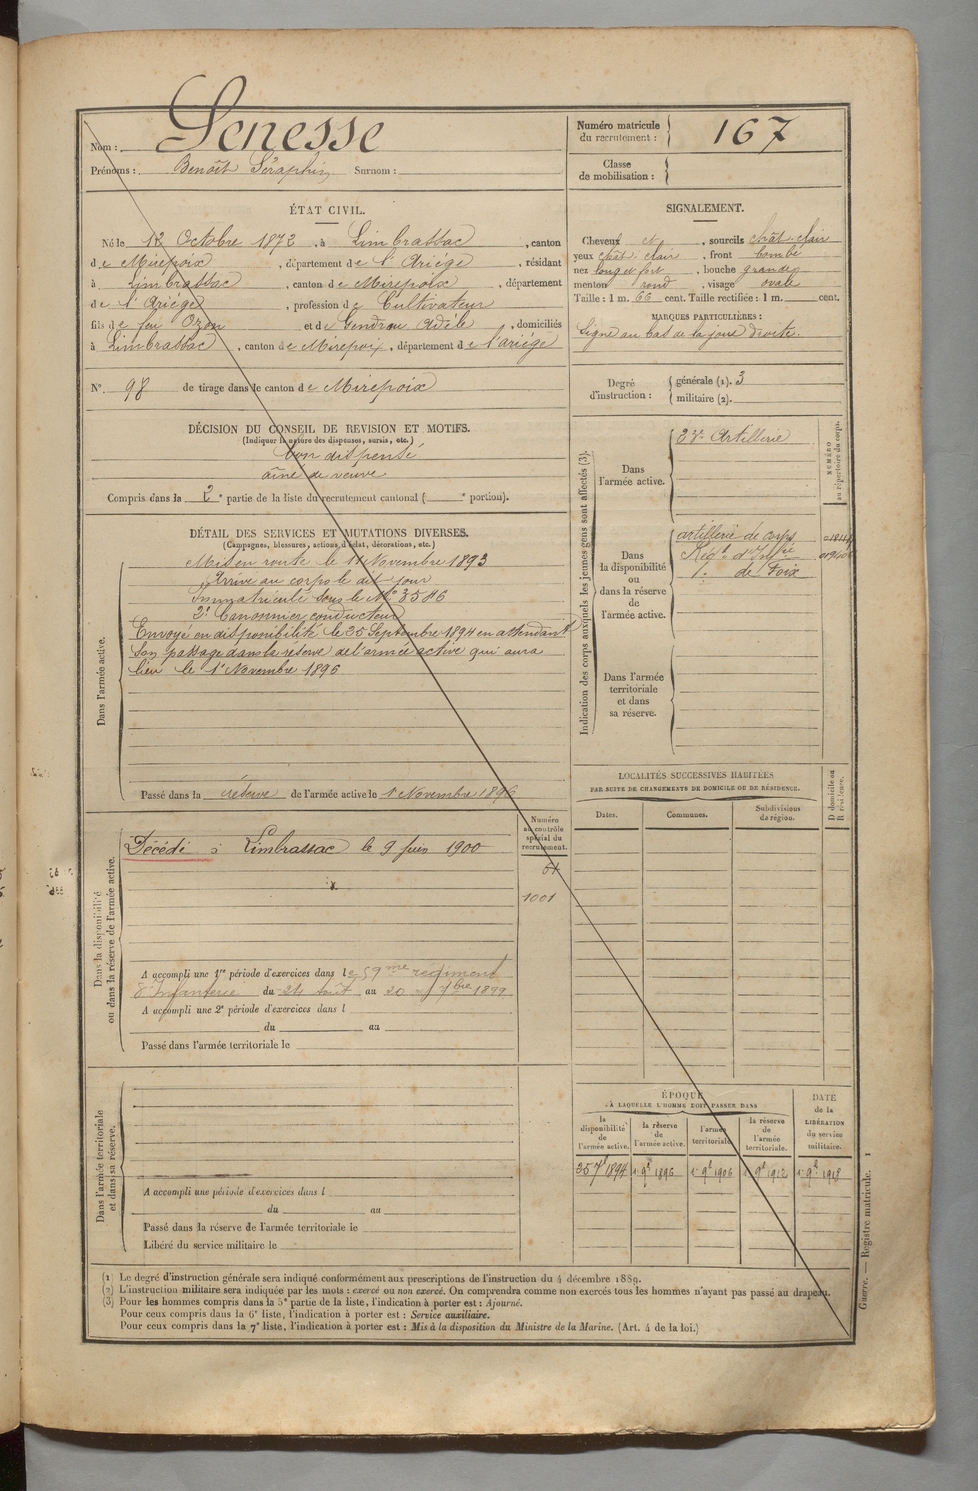 Nom : Senesse
Prénoms : Benoît Séraphin Surnom :
Numéro matricule du recrutement : 167
Classe de mobilisation :
ÉTAT CIVIL.
Né le 12 Octobre 1872, à Limbrassac, canton
de Mirepoix, département de l'Ariège, résidant
à Limbrassac, canton de Mirepoix, département
de l'Ariège, profession de Cultivateur
fils de feu Ozon et de Gendrau Adèle, domiciliés
à Limbrassac, canton de Mirepoix, département de l'ariége
N° 98 de tirage dans le canton de Mirepoix
DÉCISION DU CONSEIL DE REVISION ET MOTIFS.
(Indiquer la nature des dispenses, sursis, etc.)
bon dispensé
aîné de veuve
Compris dans la 2e partie de la liste du recrutement cantonal ( e portion).
DÉTAIL DES SERVICES ET MUTATIONS DIVERSES.
(Campagnes, blessures, actions d'éclat, décorations, etc.)
Dans l'armée active.
Mis en route le 11 Novembre 1893
Arrivé au corps le dit jour
Immatriculé sous le N° 3546
2e Canonnier conducteur
Envoyé en disponibilité le 25 Septembre 1894 en attendant
son passage dans la réserve de l'armée active qui aura
lieu le 1er Novembre 1896
Passé dans la réserve de l'armée active le 1 Novembre 1896
Dans la disponibilité
ou dans la réserve de l'armée active.
Numéro
au contrôle
spécial du
recrutement.
Décédé à Limbrassac le 9 Juin 1900
1001
A accompli une 1re période d'exercices dans le 59me régiment
d'Infanterie du 24 août au 20 7bre 1899
A accompli une 2e période d'exercices dans l
du au
Passé dans l'armée territoriale le
Dans l'armée territoriale
et dans sa réserve.
A accompli une période d'exercices dans l
du au
Passé dans la réserve de l'armée territoriale le
Libéré du service militaire le
SIGNALEMENT.
Cheveux et, sourcils chât. clair
yeux chât. clair, front bombé
nez long et fort, bouche grande
menton rond, visage ovale
Taille : 1 m. 66 cent. Taille rectifiée : 1 m. cent.
MARQUES PARTICULIÈRES :
Signe au bas de la joue droite.
Degré d'instruction : générale (1). 3
militaire (2).
Indication des corps auxquels les jeunes gens sont affectés (3).
NUMÉRO
au répertoire du corps.
Dans
l'armée active.
23e Artillerie
Dans
la disponibilité
ou
dans la réserve
de
l'armée active.
artillerie de corps
Régt d'Infie
de Foix
Dans l'armée
territoriale
et dans
sa réserve.
LOCALITÉS SUCCESSIVES HABITÉES
PAR SUITE DE CHANGEMENTS DE DOMICILE OU DE RÉSIDENCE.
Dates. Communes. Subdivisions de région.
D domicile ou
R résidence.
ÉPOQUE
A LAQUELLE L'HOMME DOIT PASSER DANS
la disponibilité de l'armée active.
la réserve de l'armée active.
l'armée territoriale.
la réserve de l'armée territoriale.
DATE
de la
LIBÉRATION
du service
militaire.
25 7e 1894 1 9e 1896 1 9e 1906 1 9e 1912 1 9e 1918
(1) Le degré d'instruction générale sera indiqué conformément aux prescriptions de l'instruction du 4 décembre 1889.
(2) L'instruction militaire sera indiquée par les mots : exercé ou non exercé. On comprendra comme non exercés tous les hommes n'ayant pas passé au drapeau.
(3) Pour les hommes compris dans la 5e partie de la liste, l'indication à porter est : Ajourné.
Pour ceux compris dans la 6e liste, l'indication à porter est : Service auxiliaire.
Pour ceux compris dans la 7e liste, l'indication à porter est : Mis à la disposition du Ministre de la Marine. (Art. 4 de la loi.)
Guerre. — Registre matricule. 1